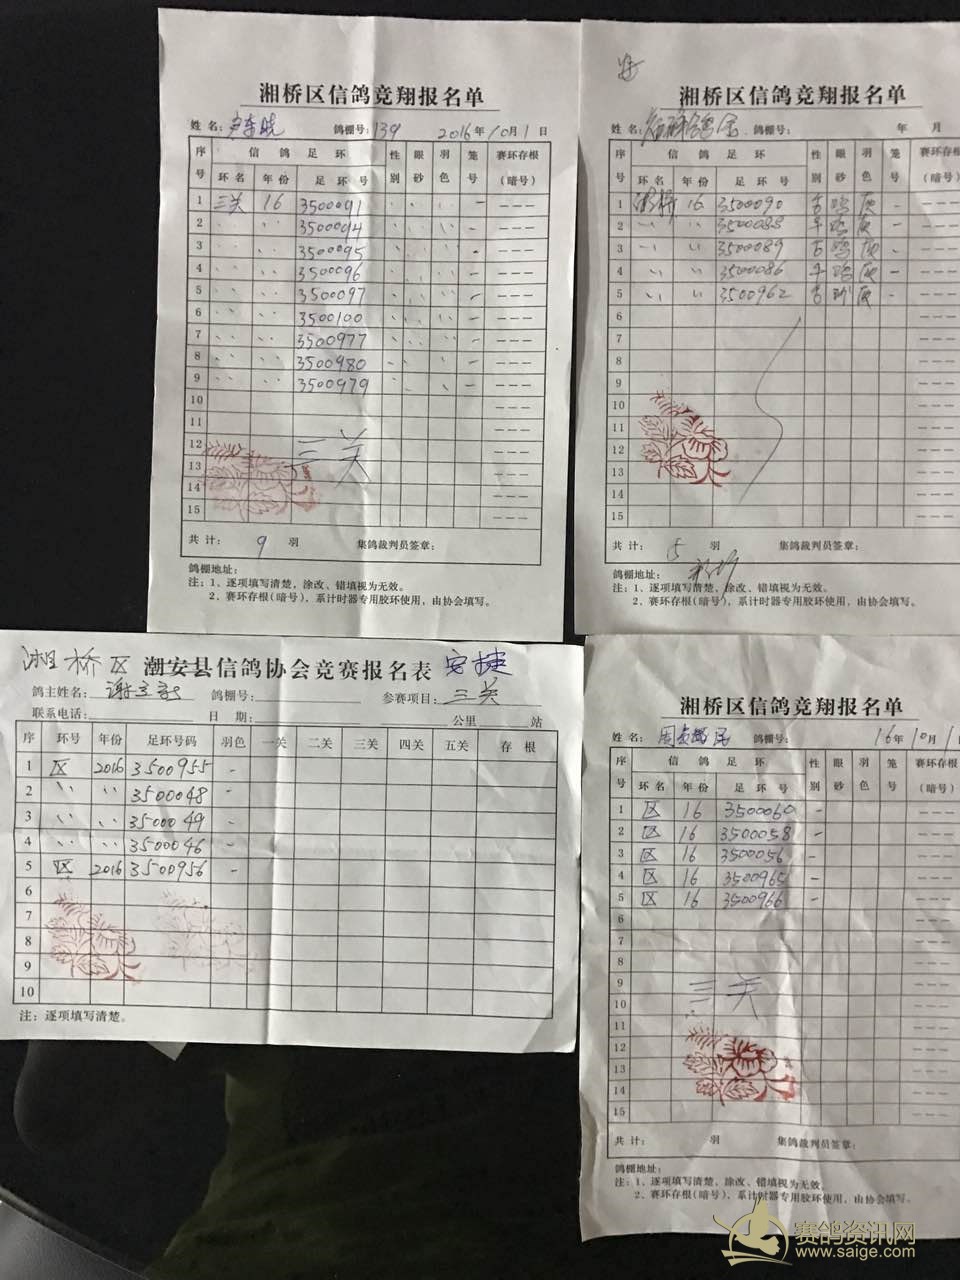 湘桥区信鸽竞翔报名单
姓名: 鸽棚号: 139 2016年10月1日
序号 信鸽足环 性别 眼砂 羽色 笼号 赛环存根(暗号)
环名 年份 足环号
1 三关 16 3500091 - ---
2 3500094 - ---
3 3500095 - ---
4 3500096 - ---
5 3500097 - ---
6 3500100 - ---
7 3500977 - ---
8 3500980 - ---
9 3500979 - ---
10 ---
11 ---
12 三关 ---
13 ---
14 ---
15 ---
共计: 9 羽 集鸽裁判员签章:
鸽棚地址:
注:1、逐项填写清楚,涂改、错填视为无效。
2、赛环存根(暗号),系计时器专用胶环使用,由协会填写。
湘桥区信鸽竞翔报名单
姓名: 鸽棚号: 年 月
序号 信鸽足环 性别 眼砂 羽色 笼号 赛环存根(暗号)
环名 年份 足环号
1 湘桥 16 3500090 - ---
2 3500088 - ---
3 3500089 - ---
4 3500086 - ---
5 3500962 - ---
6 ---
7 ---
8 ---
9 ---
10 ---
11 ---
12 ---
13 ---
14 ---
15 ---
共计: 5 羽 集鸽裁判员签章:
鸽棚地址:
注:1、逐项填写清楚,涂改、错填视为无效。
2、赛环存根(暗号),系计时器专用胶环使用,由协会填写。
湘桥区 潮安县信鸽协会竞赛报名表 安捷
鸽主姓名: 鸽棚号: 参赛项目: 三关
联系电话: 日期: 公里 站
序 环号 年份 足环号码 羽色 一关 二关 三关 四关 五关 存根
1 区 2016 3500955 -
2 3500048 -
3 3500049 -
4 3500046 -
5 区 2016 3500956 -
6
7
8
9
10
注:逐项填写清楚。
湘桥区信鸽竞翔报名单
姓名: 鸽棚号: 16年10月1日
序号 信鸽足环 性别 眼砂 羽色 笼号 赛环存根(暗号)
环名 年份 足环号
1 区 16 3500060 - ---
2 区 16 3500058 - ---
3 区 16 3500056 - ---
4 区 16 3500965 - ---
5 区 16 3500966 - ---
6 ---
7 ---
8 ---
9 三关 ---
10 ---
11 ---
12 ---
13 ---
14 ---
15 ---
共计: 羽 集鸽裁判员签章:
鸽棚地址:
注:1、逐项填写清楚,涂改、错填视为无效。
2、赛环存根(暗号),系计时器专用胶环使用,由协会填写。
赛鸽资讯网
www.saige.com